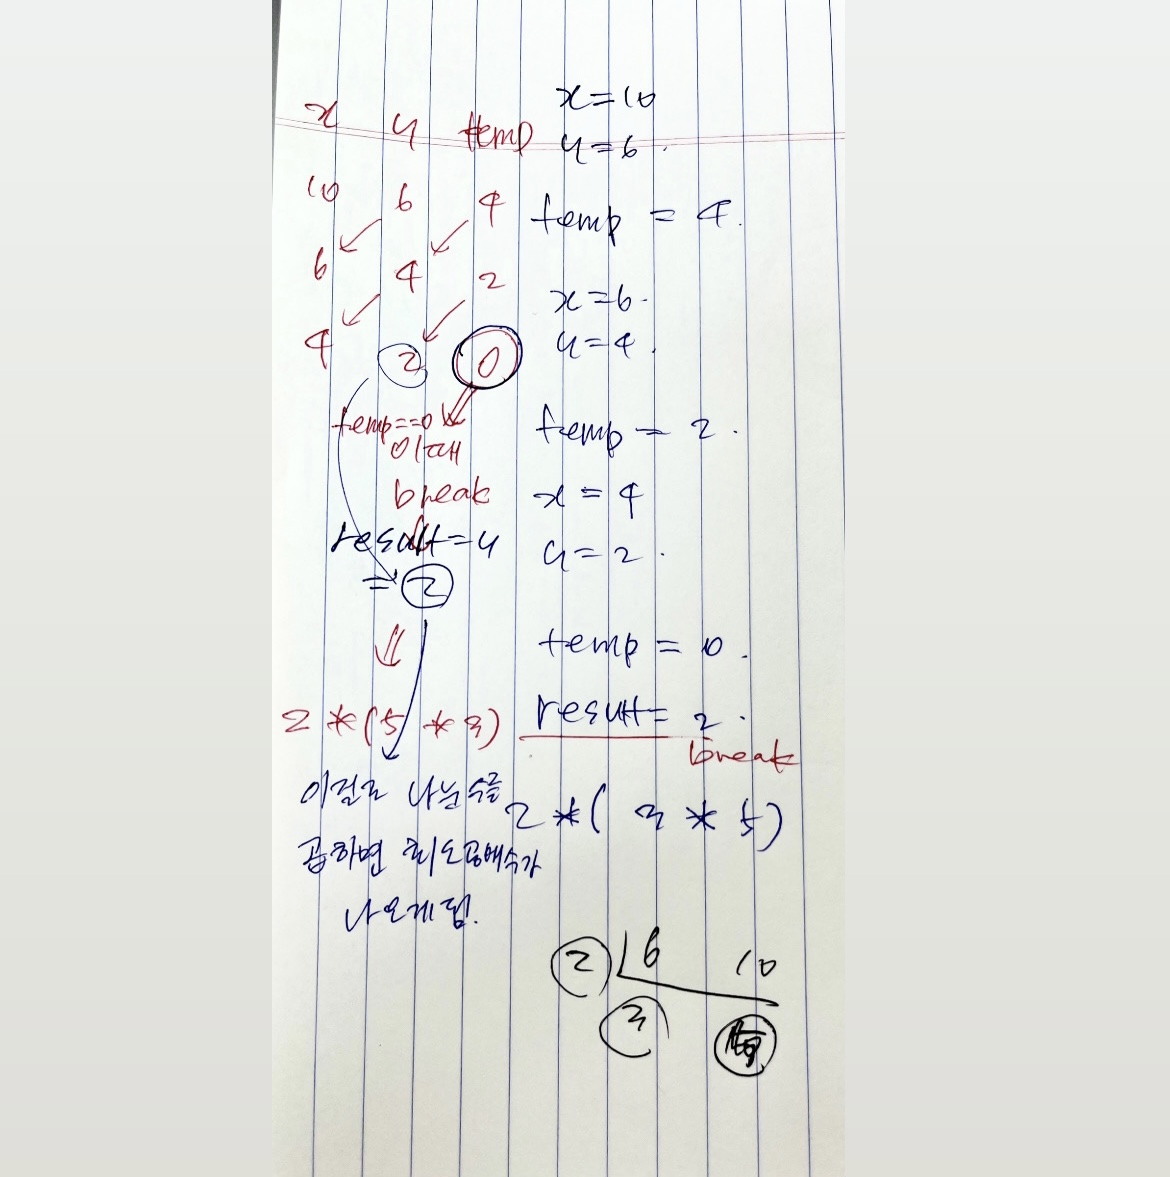 x y temp
10 6 4
6 4 2
4 2 0
temp==0
이때
break
result=y
=2
2*(5*3)
이걸로 나눈 수를
곱하면 최소공배수가
나오게 됨.
x=10
y=6.
temp=4.
x=6.
y=4.
temp=2.
x=4
y=2.
temp=0.
result=2.
break
2*(3*5)
2 6 10
3